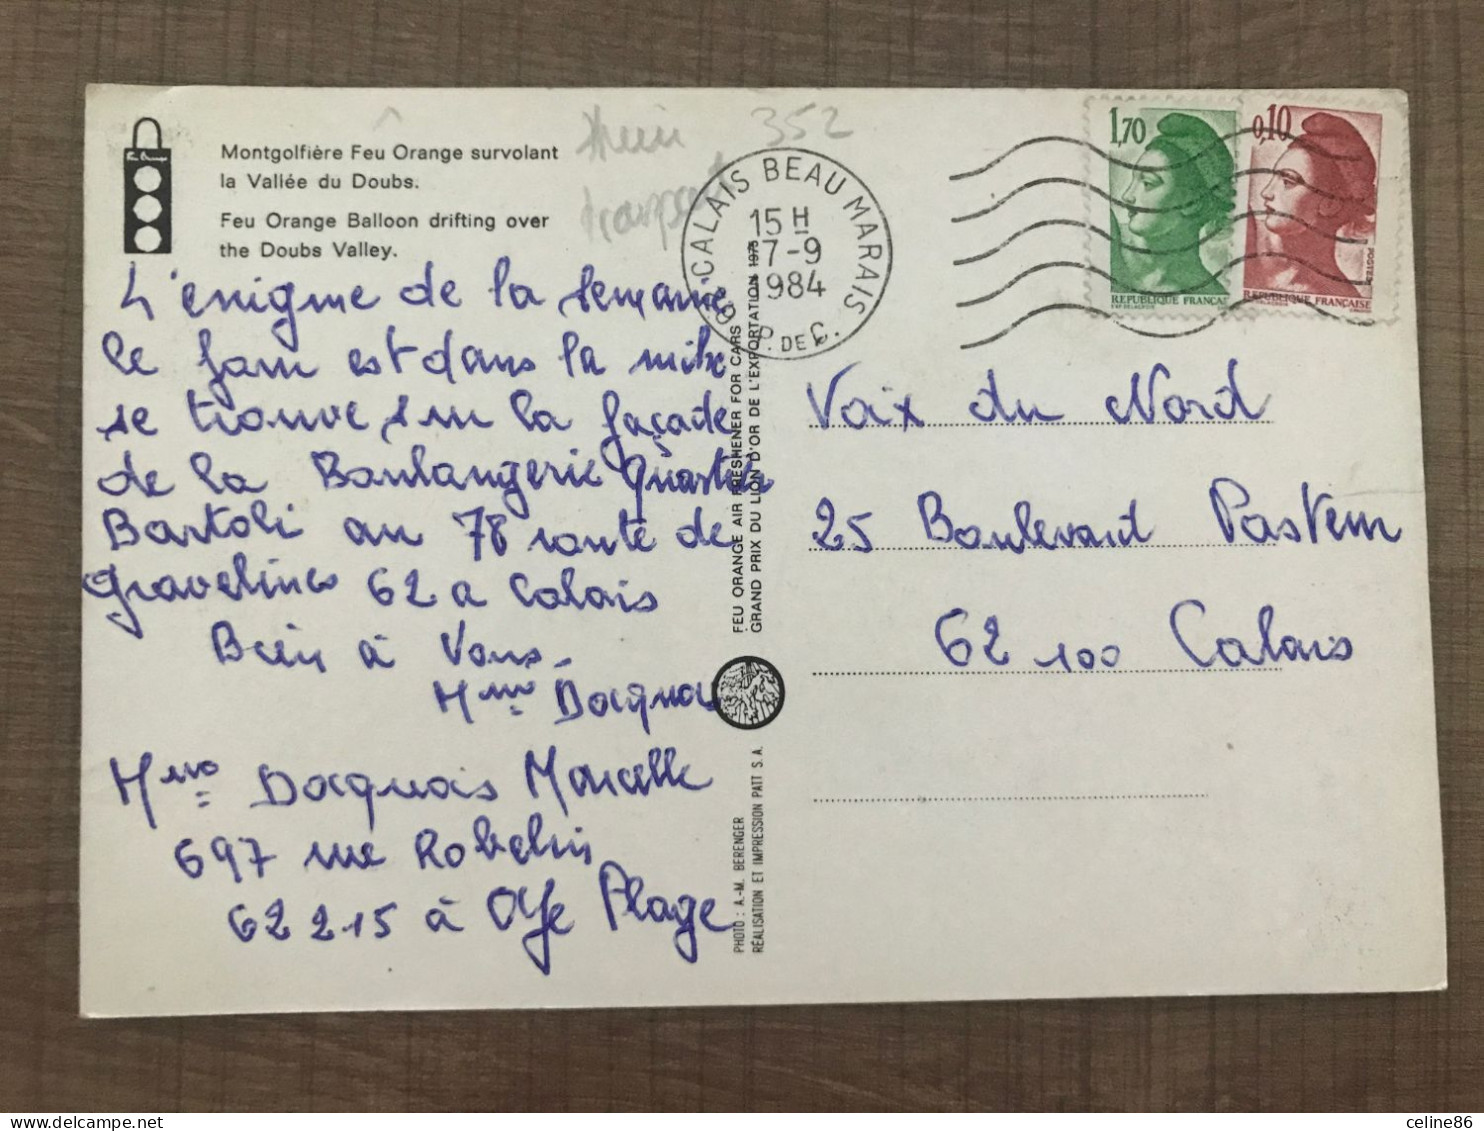 Montgolfière Feu Orange survolant
la Vallée du Doubs.
Feu Orange Balloon drifting over
the Doubs Valley.
352
L'énigme de la semaine
le fam est dans la
se trouve sur la façade
de la Boulangerie
Bartoli au 78 route de
Gravelines 62 a Calais
Bien à Vous.
Mme Docquois
Mme Docquois Marcelle
697 rue Robelin
62215 à Oye Plage
FEU ORANGE AIR FRESHENER FOR CARS
GRAND PRIX DU LION D'OR DE L'EXPORTATION 1978
PHOTO : A.-M. BERENGER
RÉALISATION ET IMPRESSION PATT S.A.
CALAIS BEAU MARAIS
15 H
7-9
1984
P. DE C.
1,70
REPUBLIQUE FRANCAISE
0,10
POSTES
REPUBLIQUE FRANÇAISE
Voix du Nord
25 Boulevard Pasteur
62100 Calais
celine86